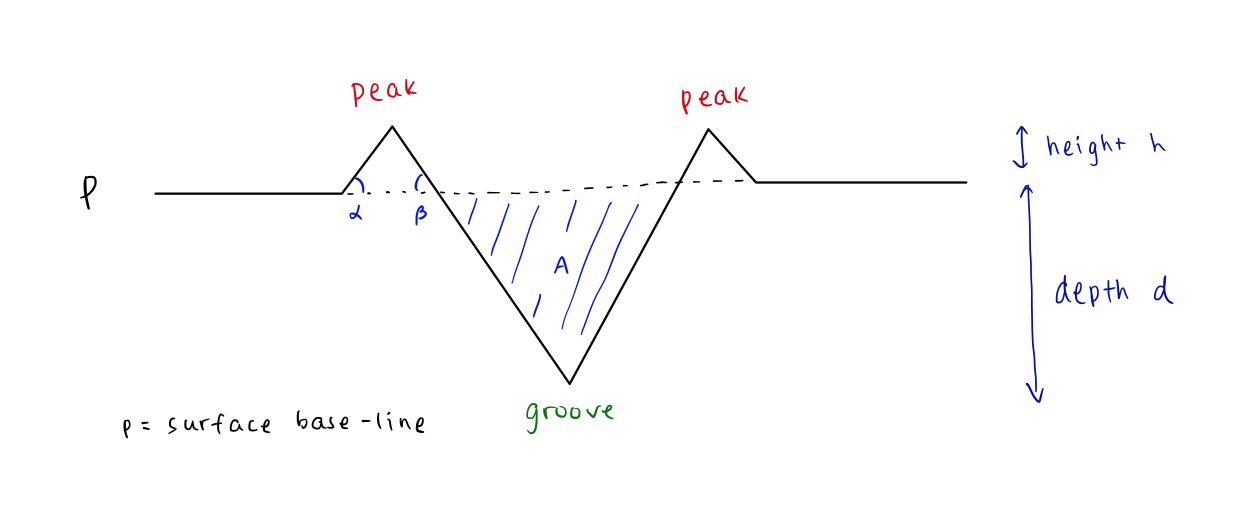 Peak
peak
height h
P
α β
A
depth d
groove
p = surface base-line